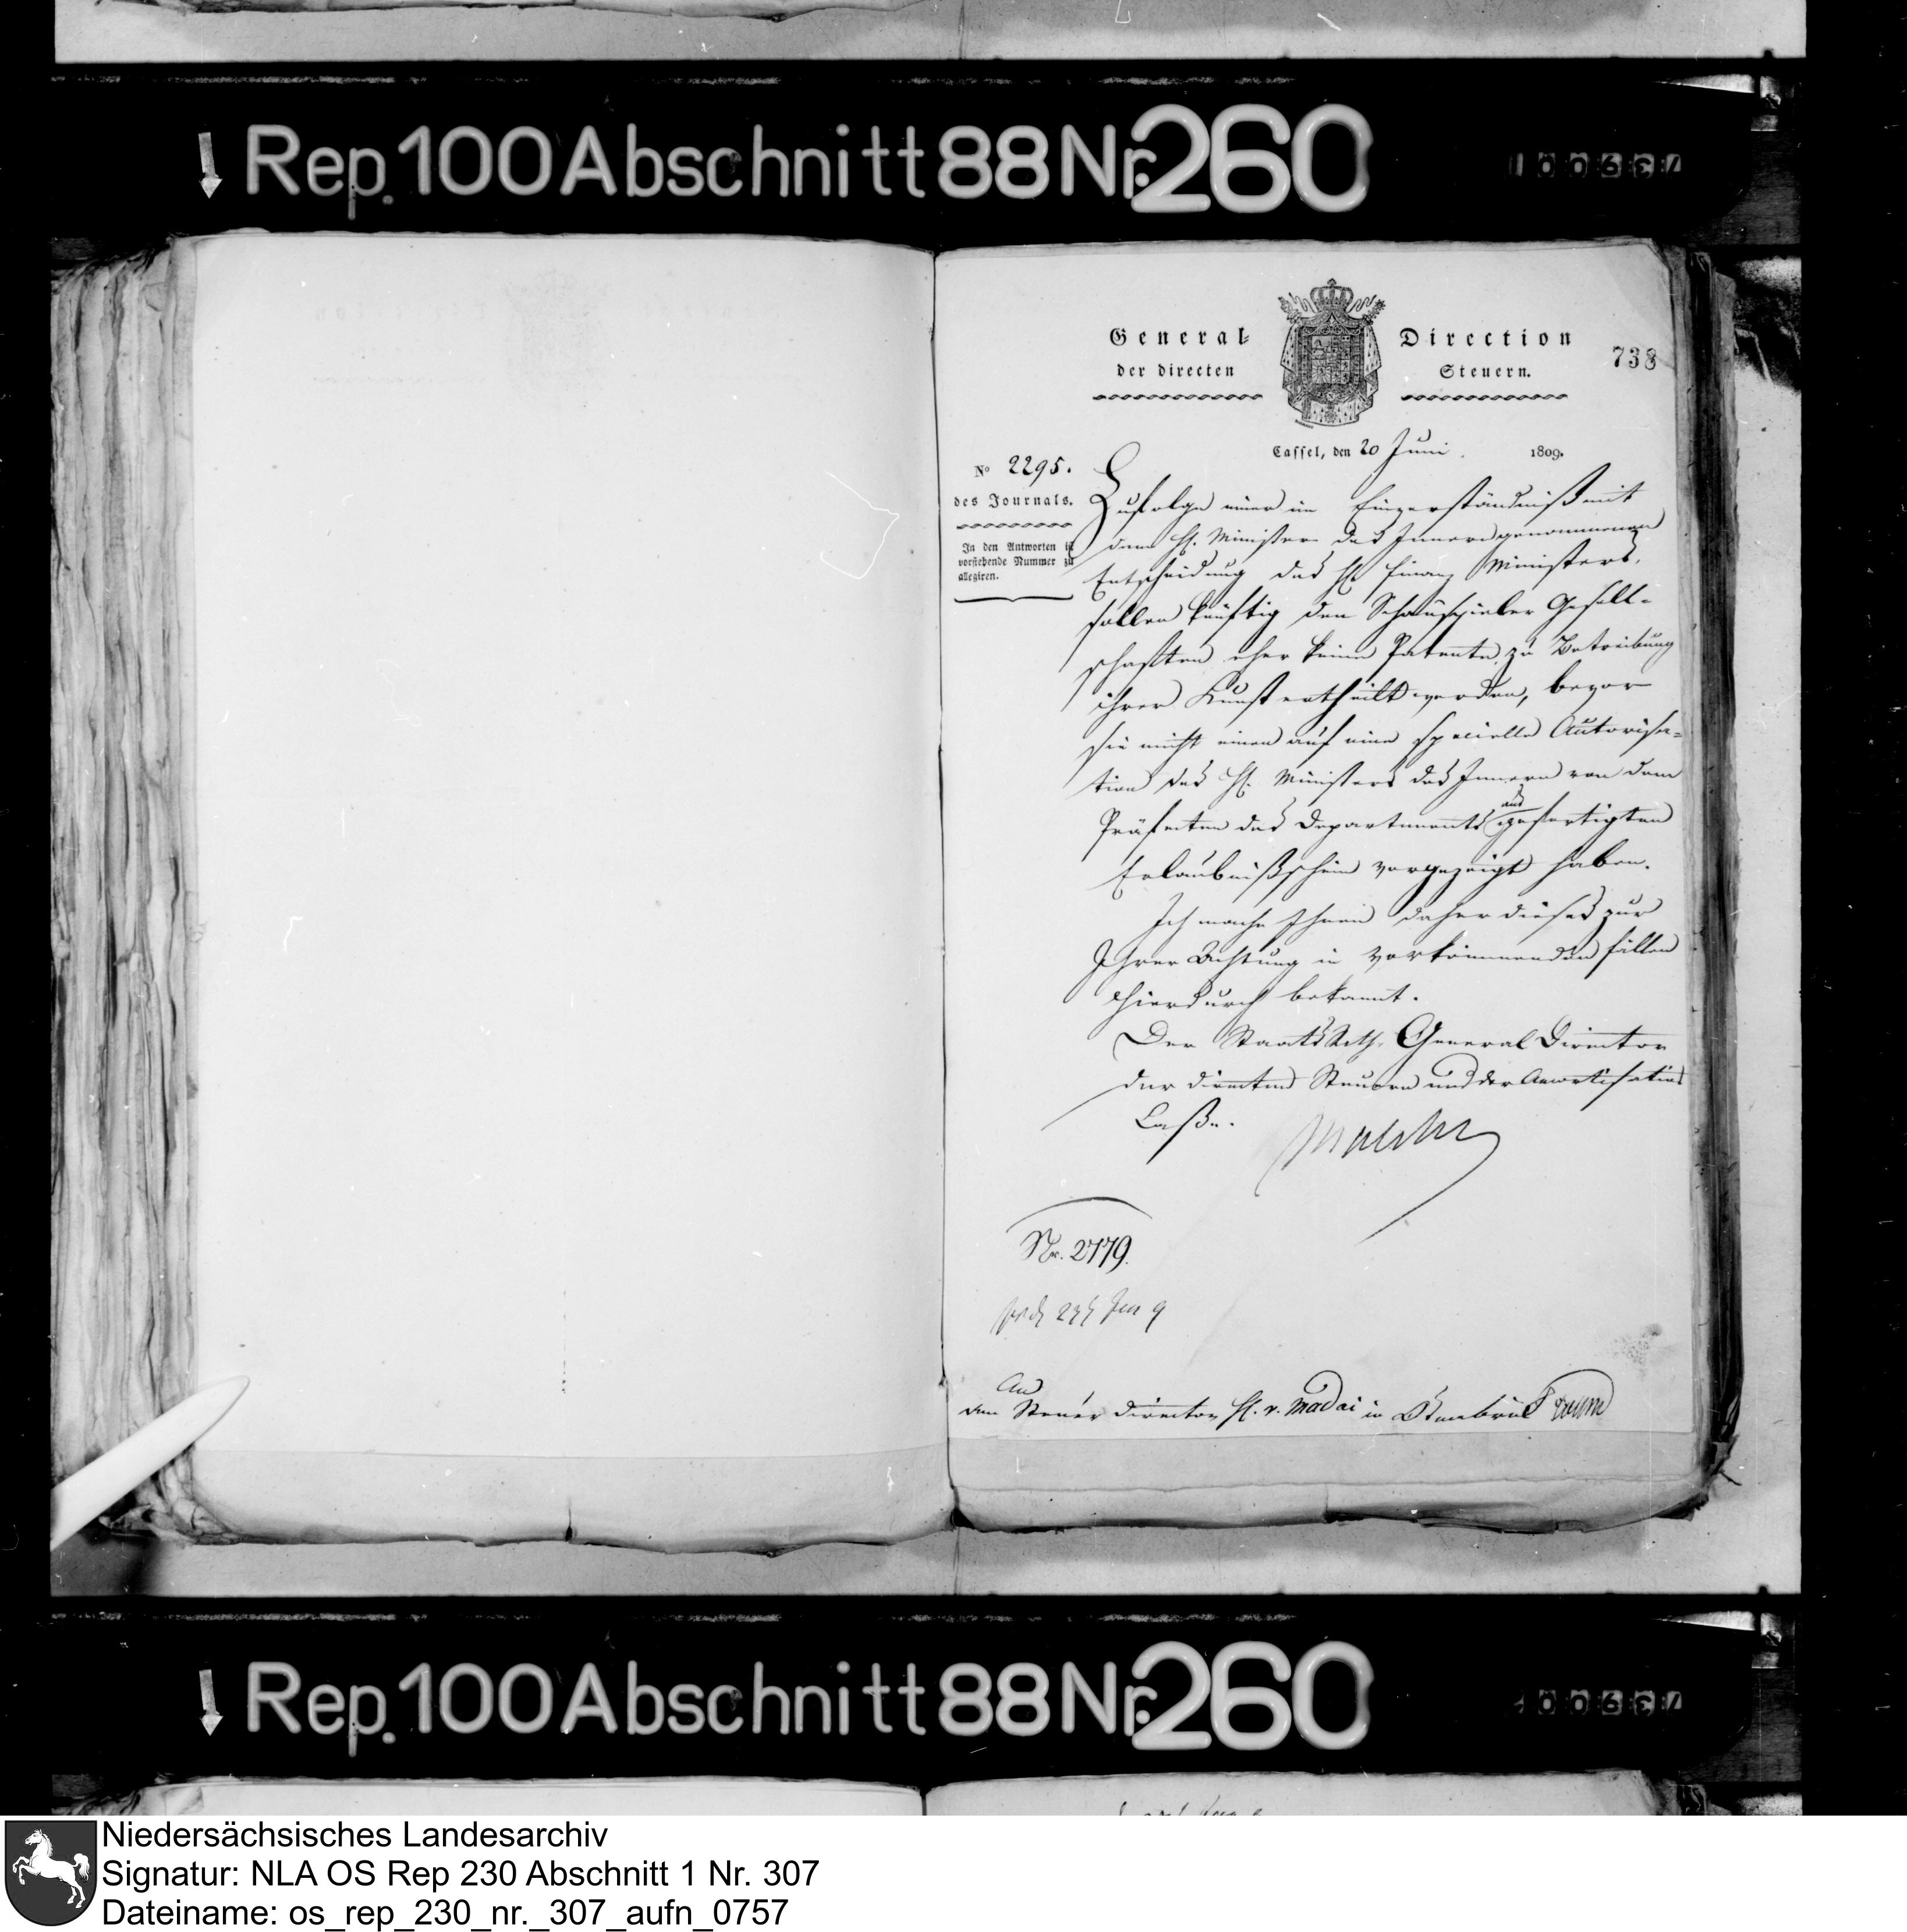 Rep. 100 Abschnitt 88 Nr. 260
General- Direction
der directen Steuern.
738
Cassel, den 20 Juni 1809.
No 2295.
des Journals.
In den Antworten ist
vorstehende Nummer zu
allegiren.
Zufolge einer im Einverständniß mit
dem H. Minister des Innern genommenen
Entscheidung des H. Finanz Ministers,
sollen künftig den Schauspieler Gesell-
schaften eher keine Patente zu Betreibung
ihrer Kunst ertheilt werden, bevor
sie nicht einen auf eine specielle Autorisa-
tion des H. Ministers des Innern von dem
Präfecten des Departements ausgefertigten
Erlaubnißschein vorgezeigt haben.
Ich mache Ihnen daher dieses zur
Ihrer Achtung in vorkommenden Fällen
hierdurch bekannt.
Der StaatsRath, General Director
der directen Steuern und der Amortisations
Casse.
Malchus
Nr. 2779.
An
den Steuer Director H. v. Madai in Osnabrück
Rep. 100 Abschnitt 88 Nr. 260
Niedersächsisches Landesarchiv
Signatur: NLA OS Rep 230 Abschnitt 1 Nr. 307
Dateiname: os_rep_230_nr._307_aufn_0757